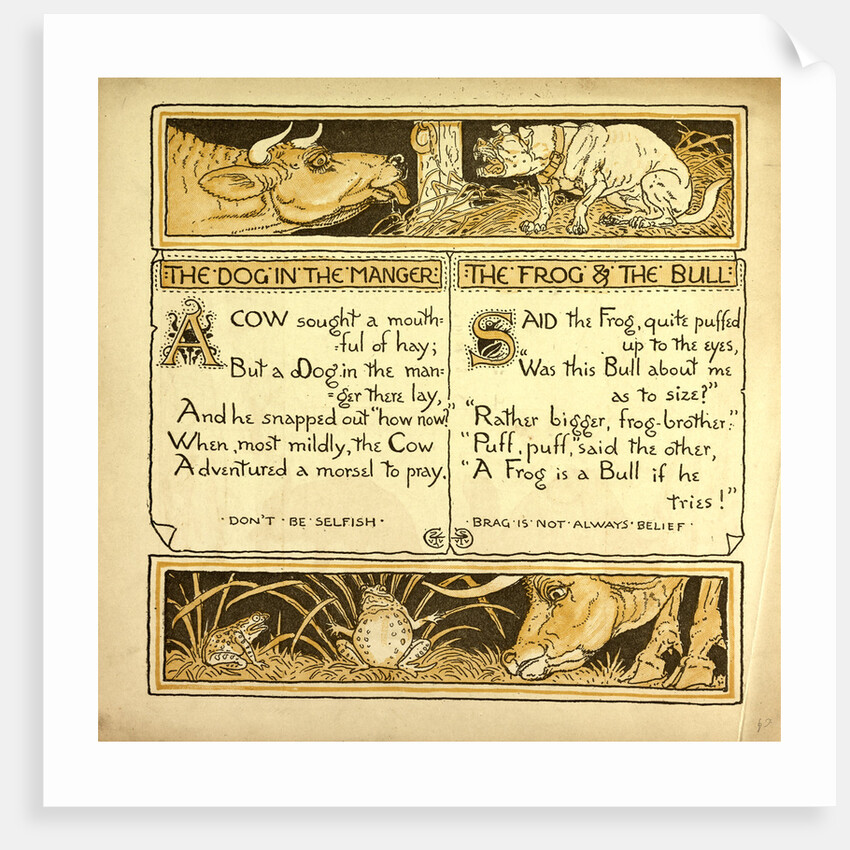 THE DOG IN THE MANGER:
A COW sought a mouth=
=ful of hay;
But a Dog in the man=
=ger there lay,
And he snapped out "how now?"
When, most mildly, the Cow
Adventured a morsel to pray.
· DON'T · BE · SELFISH ·
THE · FROG & THE · BULL:
SAID the Frog, quite puffed
up to the eyes,
"Was this Bull about me
as to size?"
"Rather bigger, frog-brother."
"Puff, puff," said the other,
"A Frog is a Bull if he
tries!"
BRAG · IS · NOT · ALWAYS · BELIEF ·